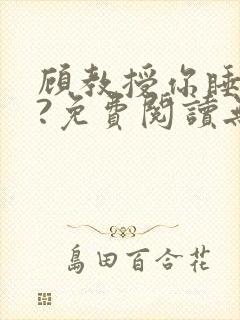 顾教授你睡
?免費閱讀
島田百合花